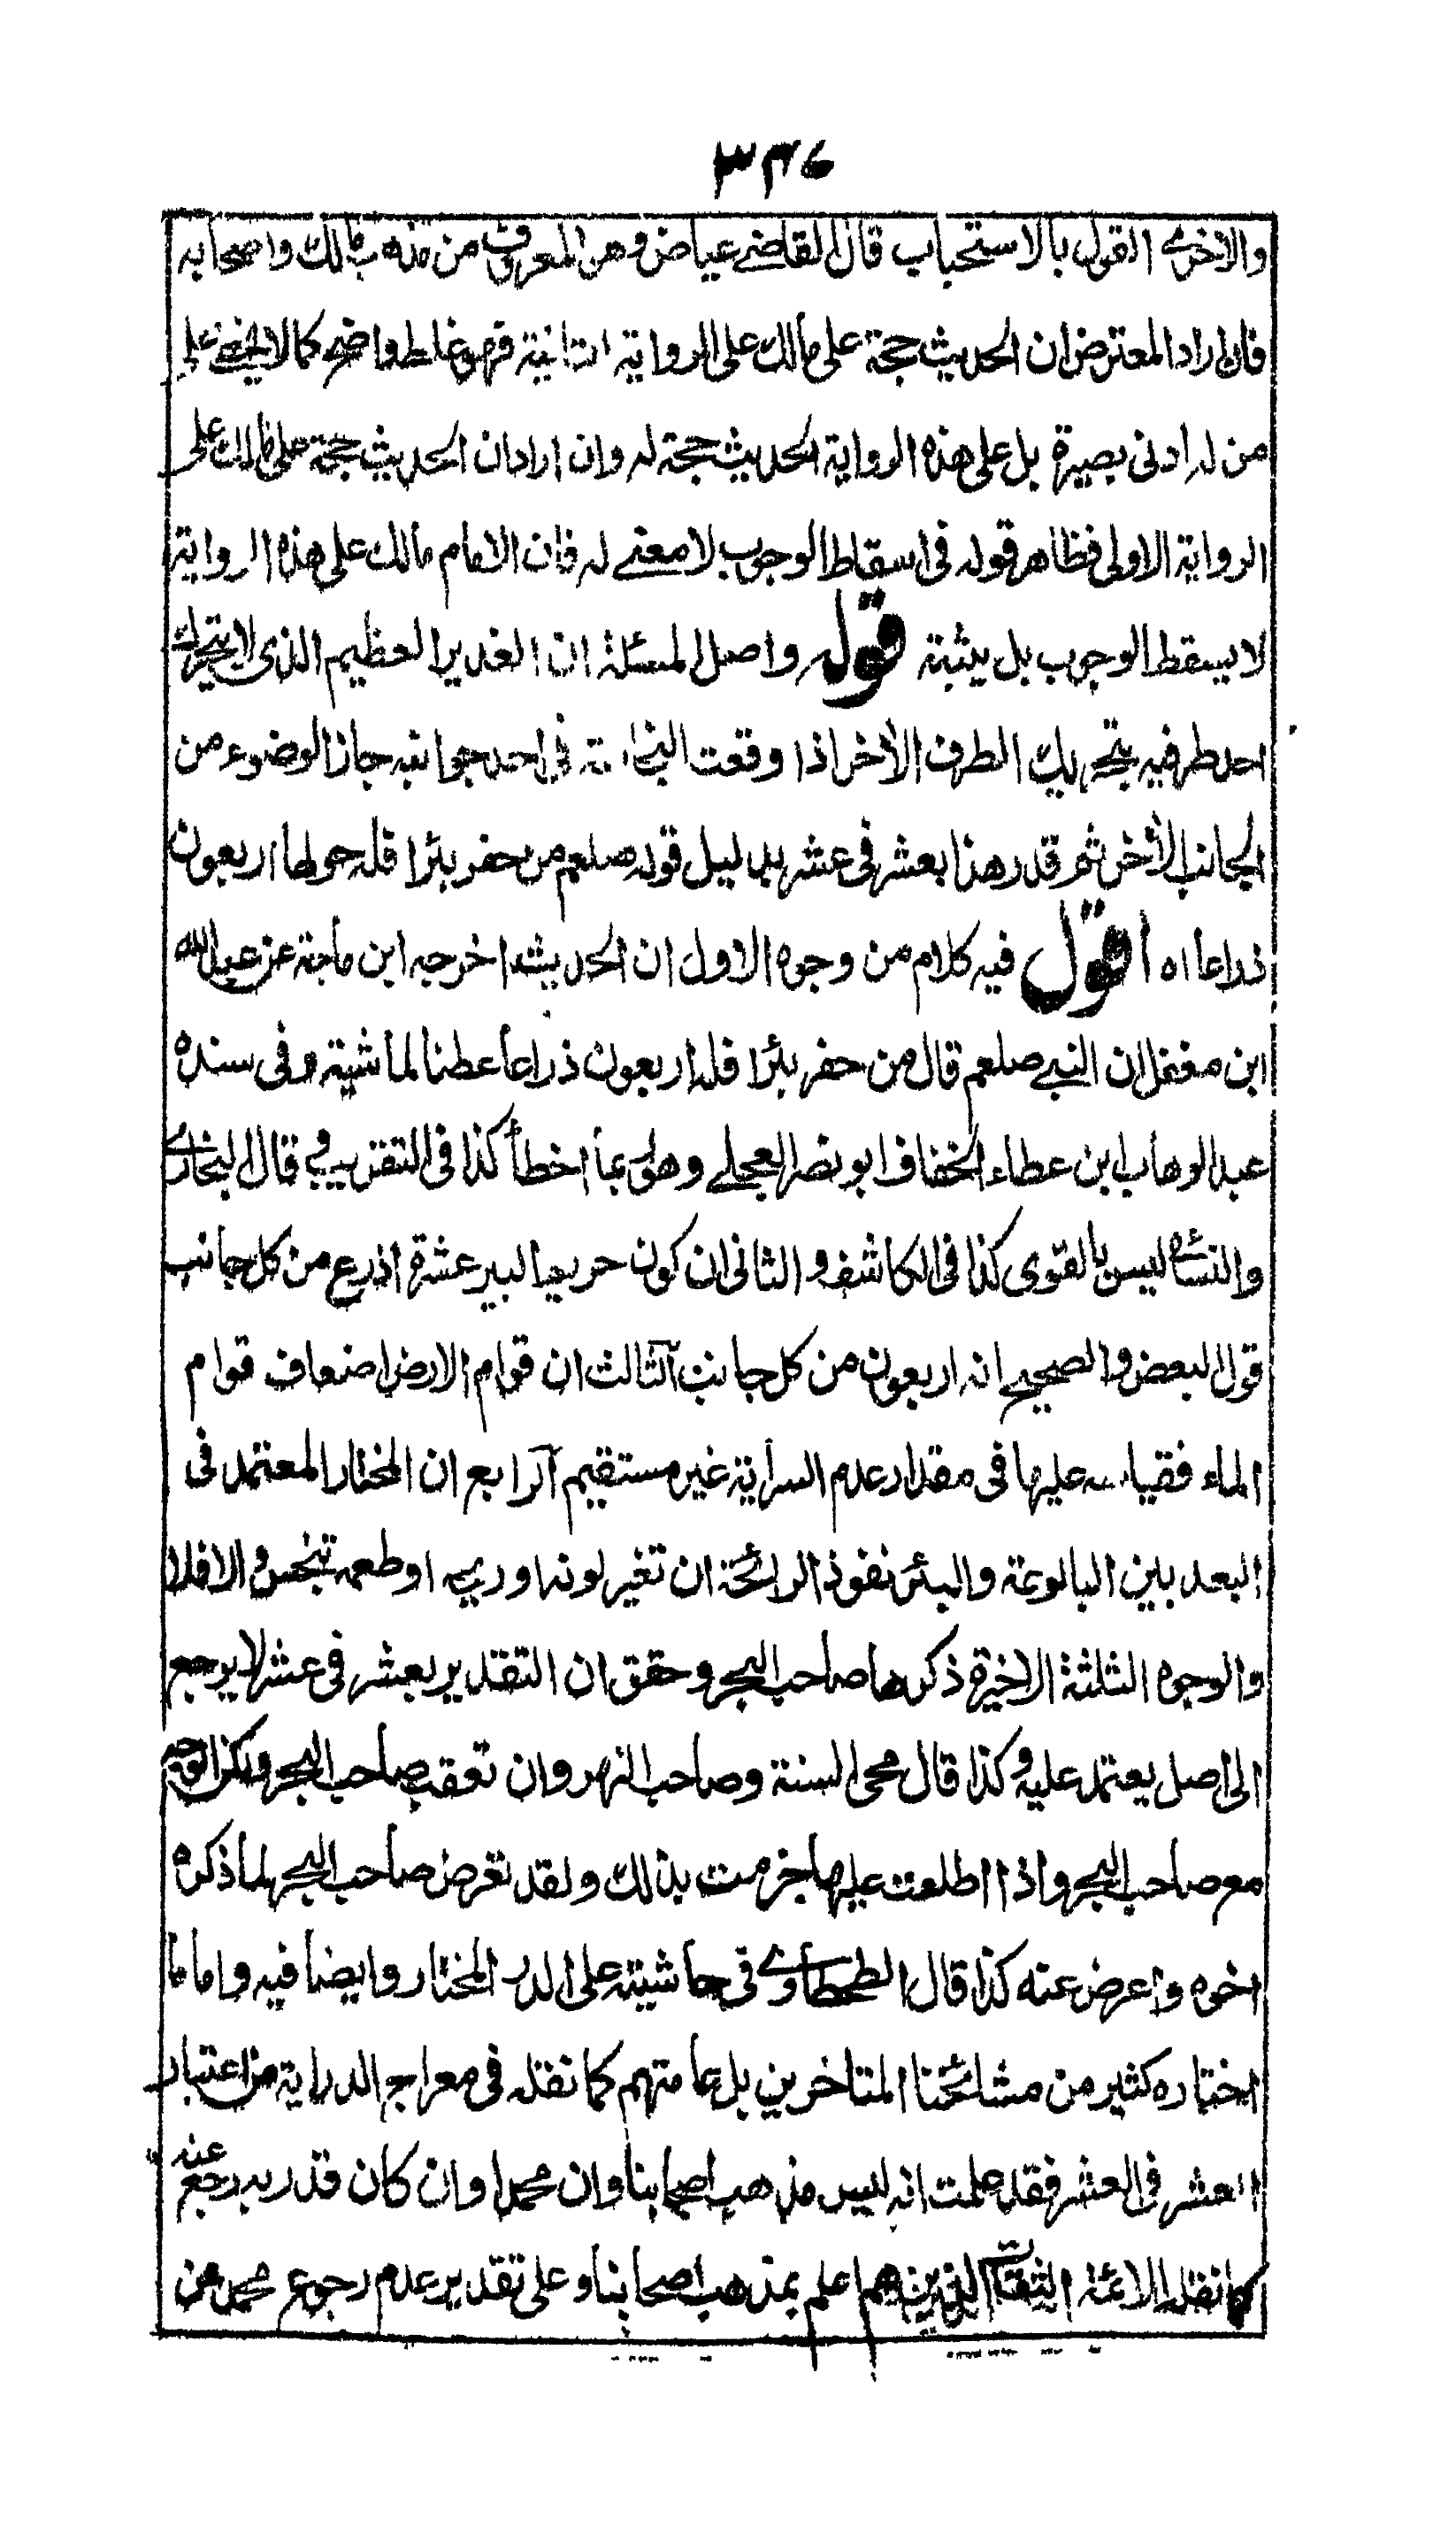 ٣٣٤
والاخرى القول بالاستحباب قال القاضے عياض وهو المعروف من مذهب مالك واصحابه
فان اراد المعترض ان الحديث حجة على مالك على الرواية الثانية فهو غلط واضح كما لا يخفے على
من له ادنى بصيرة بل على هذه الرواية الحديث حجة له وان اراد ان الحديث حجة على مالك على
الرواية الاولى فظاهر قوله فى اسقاط الوجوب لا معنے له فان الامام مالك على هذه الرواية
لا يسقط الوجوب بل يثبته قوله واصل المسئلة ان الغدير العظيم الذى لا يتحرك
احد طرفيه بتحريك الطرف الأخر اذا وقعت النجاسة في احد جوانبه جاز الوضوء من
الجانب الأخر ثم قدر هذا بعشر فى عشر بدليل قوله صلعم من حفر بئرا فله حولها اربعون
ذراعا اه أقول فيه كلام من وجوه الاول ان الحديث اخرجه ابن ماجة عن عبد الله
ابن مغفل ان النبے صلعم قال من حفر بئرا فله اربعون ذراعا عطنا لماشيته وفى سنده
عبد الوهاب ابن عطاء الخفاف ابو نصر العجلے وهو ربما اخطأ كذا فى التقريب وقال البخارى
والنسائ ليس بالقوى كذا فى الكاشف والثانى ان كون حريم البير عشرة اذرع من كل جانب
قول البعض والصحيح انه اربعون من كل جانب الثالث ان قوام الارض اضعاف قوام
الماء فقياسه عليها فى مقدار عدم السراية غير مستقيم الرابع ان المختار المعتمد فى
البعد بين البالوعة والبئر نفوذ الرائحة ان تغير لونه او ريحه او طعمه تنجس والا فلا
والوجوه الثلثة الاخيرة ذكرها صاحب البحر وحقق ان التقدير بعشر فى عشر لا يرجع
الى اصل يعتمد عليه وكذا قال محى السنة وصاحب النهر وان تعقب صاحب البحر ولكن الوجه
مع صاحب البحر واذا اطلعت عليها جزمت بذلك ولقد تعرض صاحب البحر لما ذكره
اخوه واعرض عنه كذا قال الطحطاوے فى حاشيته على الدر المختار وايضا فيه واما ما
اختاره كثير من مشائخنا المتاخرين بل عامتهم كما نقله فى معراج الدراية من اعتبار
العشر فى العشر فقد علمت انه ليس مذهب اصحابنا وان محمدا وان كان قدر به رجع عنه
كما نقله الائمة الثقات الذين هم اعلم بمذهب اصحابنا وعلى تقدير عدم رجوع محمد من